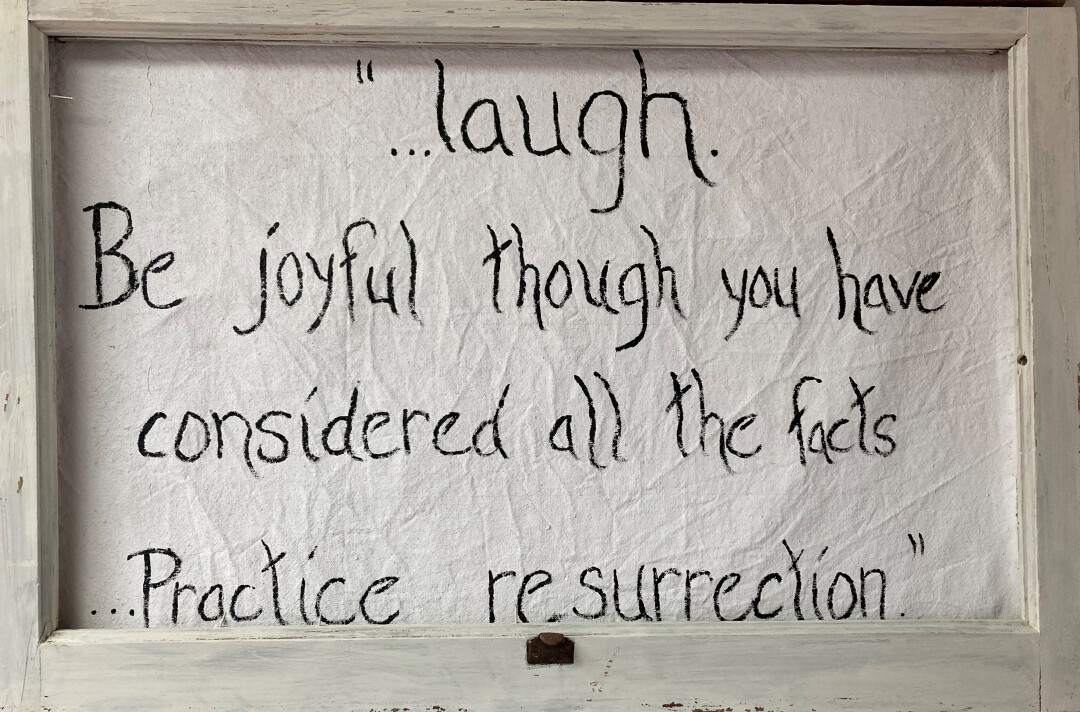 "...laugh.
Be joyful though you have
considered all the facts
...Practice resurrection."